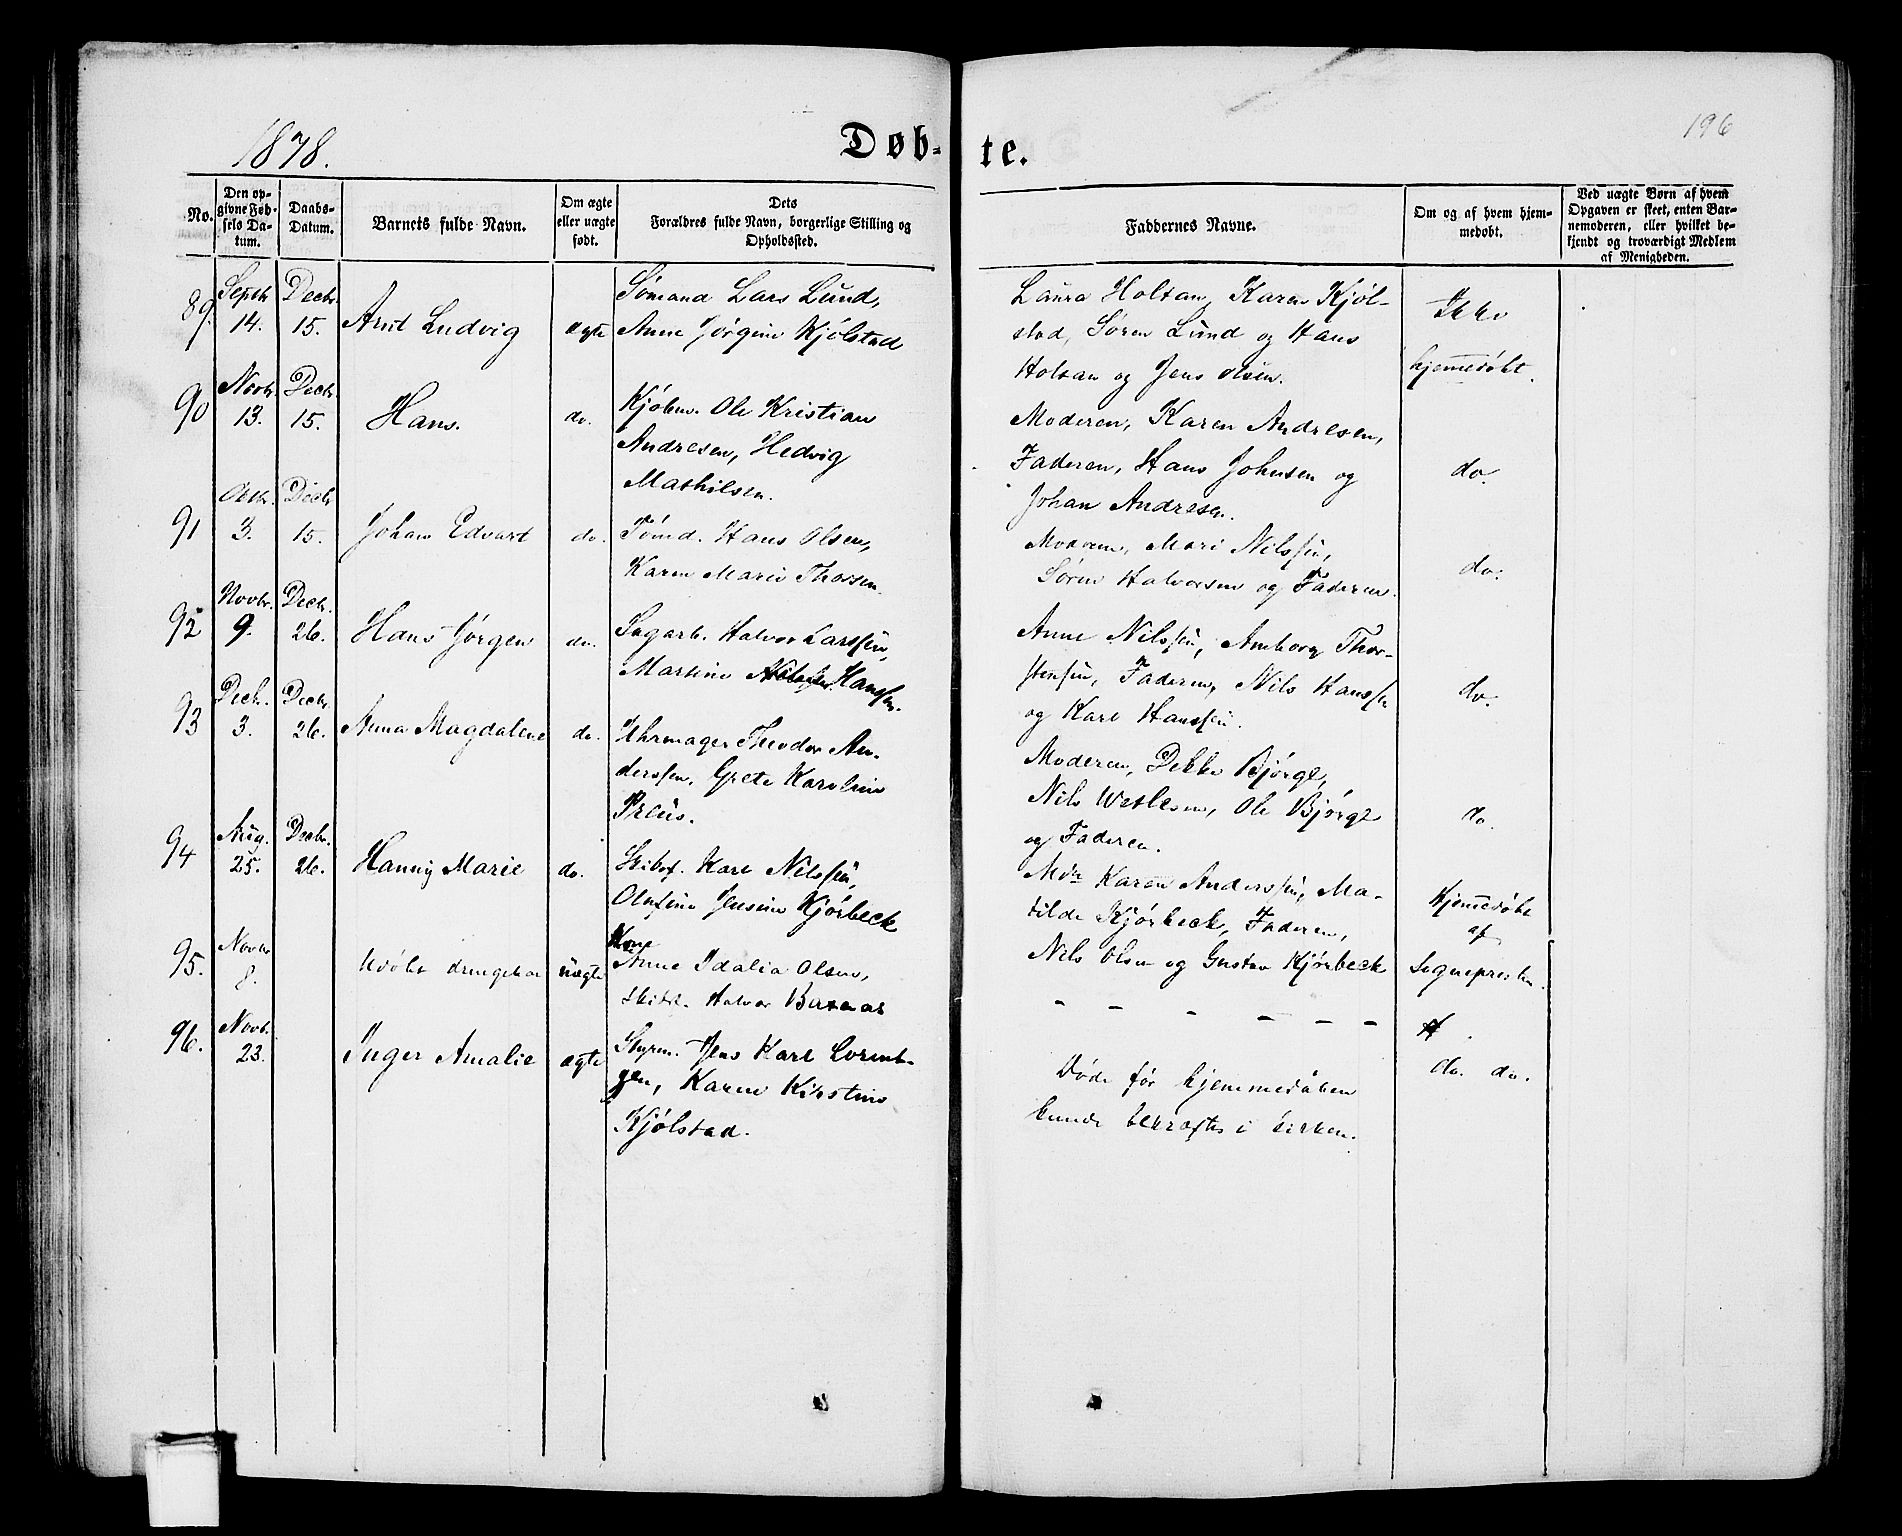 1878.
Døb-
te.
196
No.
Den op-
givne Føb-
sels Da-
tum.
Daabs-
Datum.
Barnets fulde Navn.
Om ægte
eller uægte
født.
Dets
Forældres fulde Navn, borgerlige Stilling og
Opholdssted.
Faddernes Navne.
Om og af hvem hjem-
medøbt.
Ved uægte Børn af hvem
Opgaven er skeet, enten Bar-
nemoderen, eller hvilket be-
kjendt og troværdigt Medlem
af Menigheden.
89.
Septr
14.
Decbr.
15.
Arnt Ludvig
ægte
Sømand Lars Lund,
Anne Jørgine Kjølstad
Laura Holtan, Karen Kjøl-
stad, Søren Lund og Hans
Holtan og Jens Olsen.
Ikke
hjemedøbt.
90
Novbr.
13.
Decbr.
15.
Hans.
do.
Kjøbm. Ole Kristian
Andresen, Hedvig
Mathilsen.
Moderen, Karen Andresen,
Faderen, Hans Johnsen og
Johan Andresen.
do.
91
Octbr.
3.
Decbr
15.
Johan Edvart
do.
Tømd. Hans Olsen,
Karen Marie Thossen.
Moderen, Mari Nilssen,
Søren Halvorsen og Faderen.
do.
92
Novbr.
9.
Decbr.
26.
Hans Jørgen
do.
Sagarb. Halvor Larssen,
Martine Hanssen.
Anne Nilssen, Amborg Thor-
stensen, Faderen, Nils Hanssen
og Karl Hanssen.
do.
93
Decbr.
3.
Decbr.
26.
Anna Magdalene
do.
Uhrmager Theodor An-
derssen, Grete Karoline
Preus.
Moderen, Dekke Bjørge,
Nils Wetlesen, Ole Bjørge
og Faderen.
do.
94
Aug.
25.
Decbr.
26.
Hanny Marie
do.
Skibsf. Karl Nilssen,
Olufine Jensine Kjørbeck
Mdr Karen Anderssen, Ma-
tilde Kjørbeck, Faderen,
Nils Olsen og Gustav Kjørbeck
Hjemedøbt
af
Sognepresten.
95.
Novbr
8.
Udøbt drengebar
uægte
Kone
Anne Idalia Olsen,
Skibst. Halvor Baxaas
- - - - - -
96.
Novb.
23.
Inger Amalie
ægte
Styrm. Jens Karl Lorent-
zen, Karen Kirstine
Kjølstad.
Døde før hjemmedåben
kunde bekræftes i kirken.
do. do.